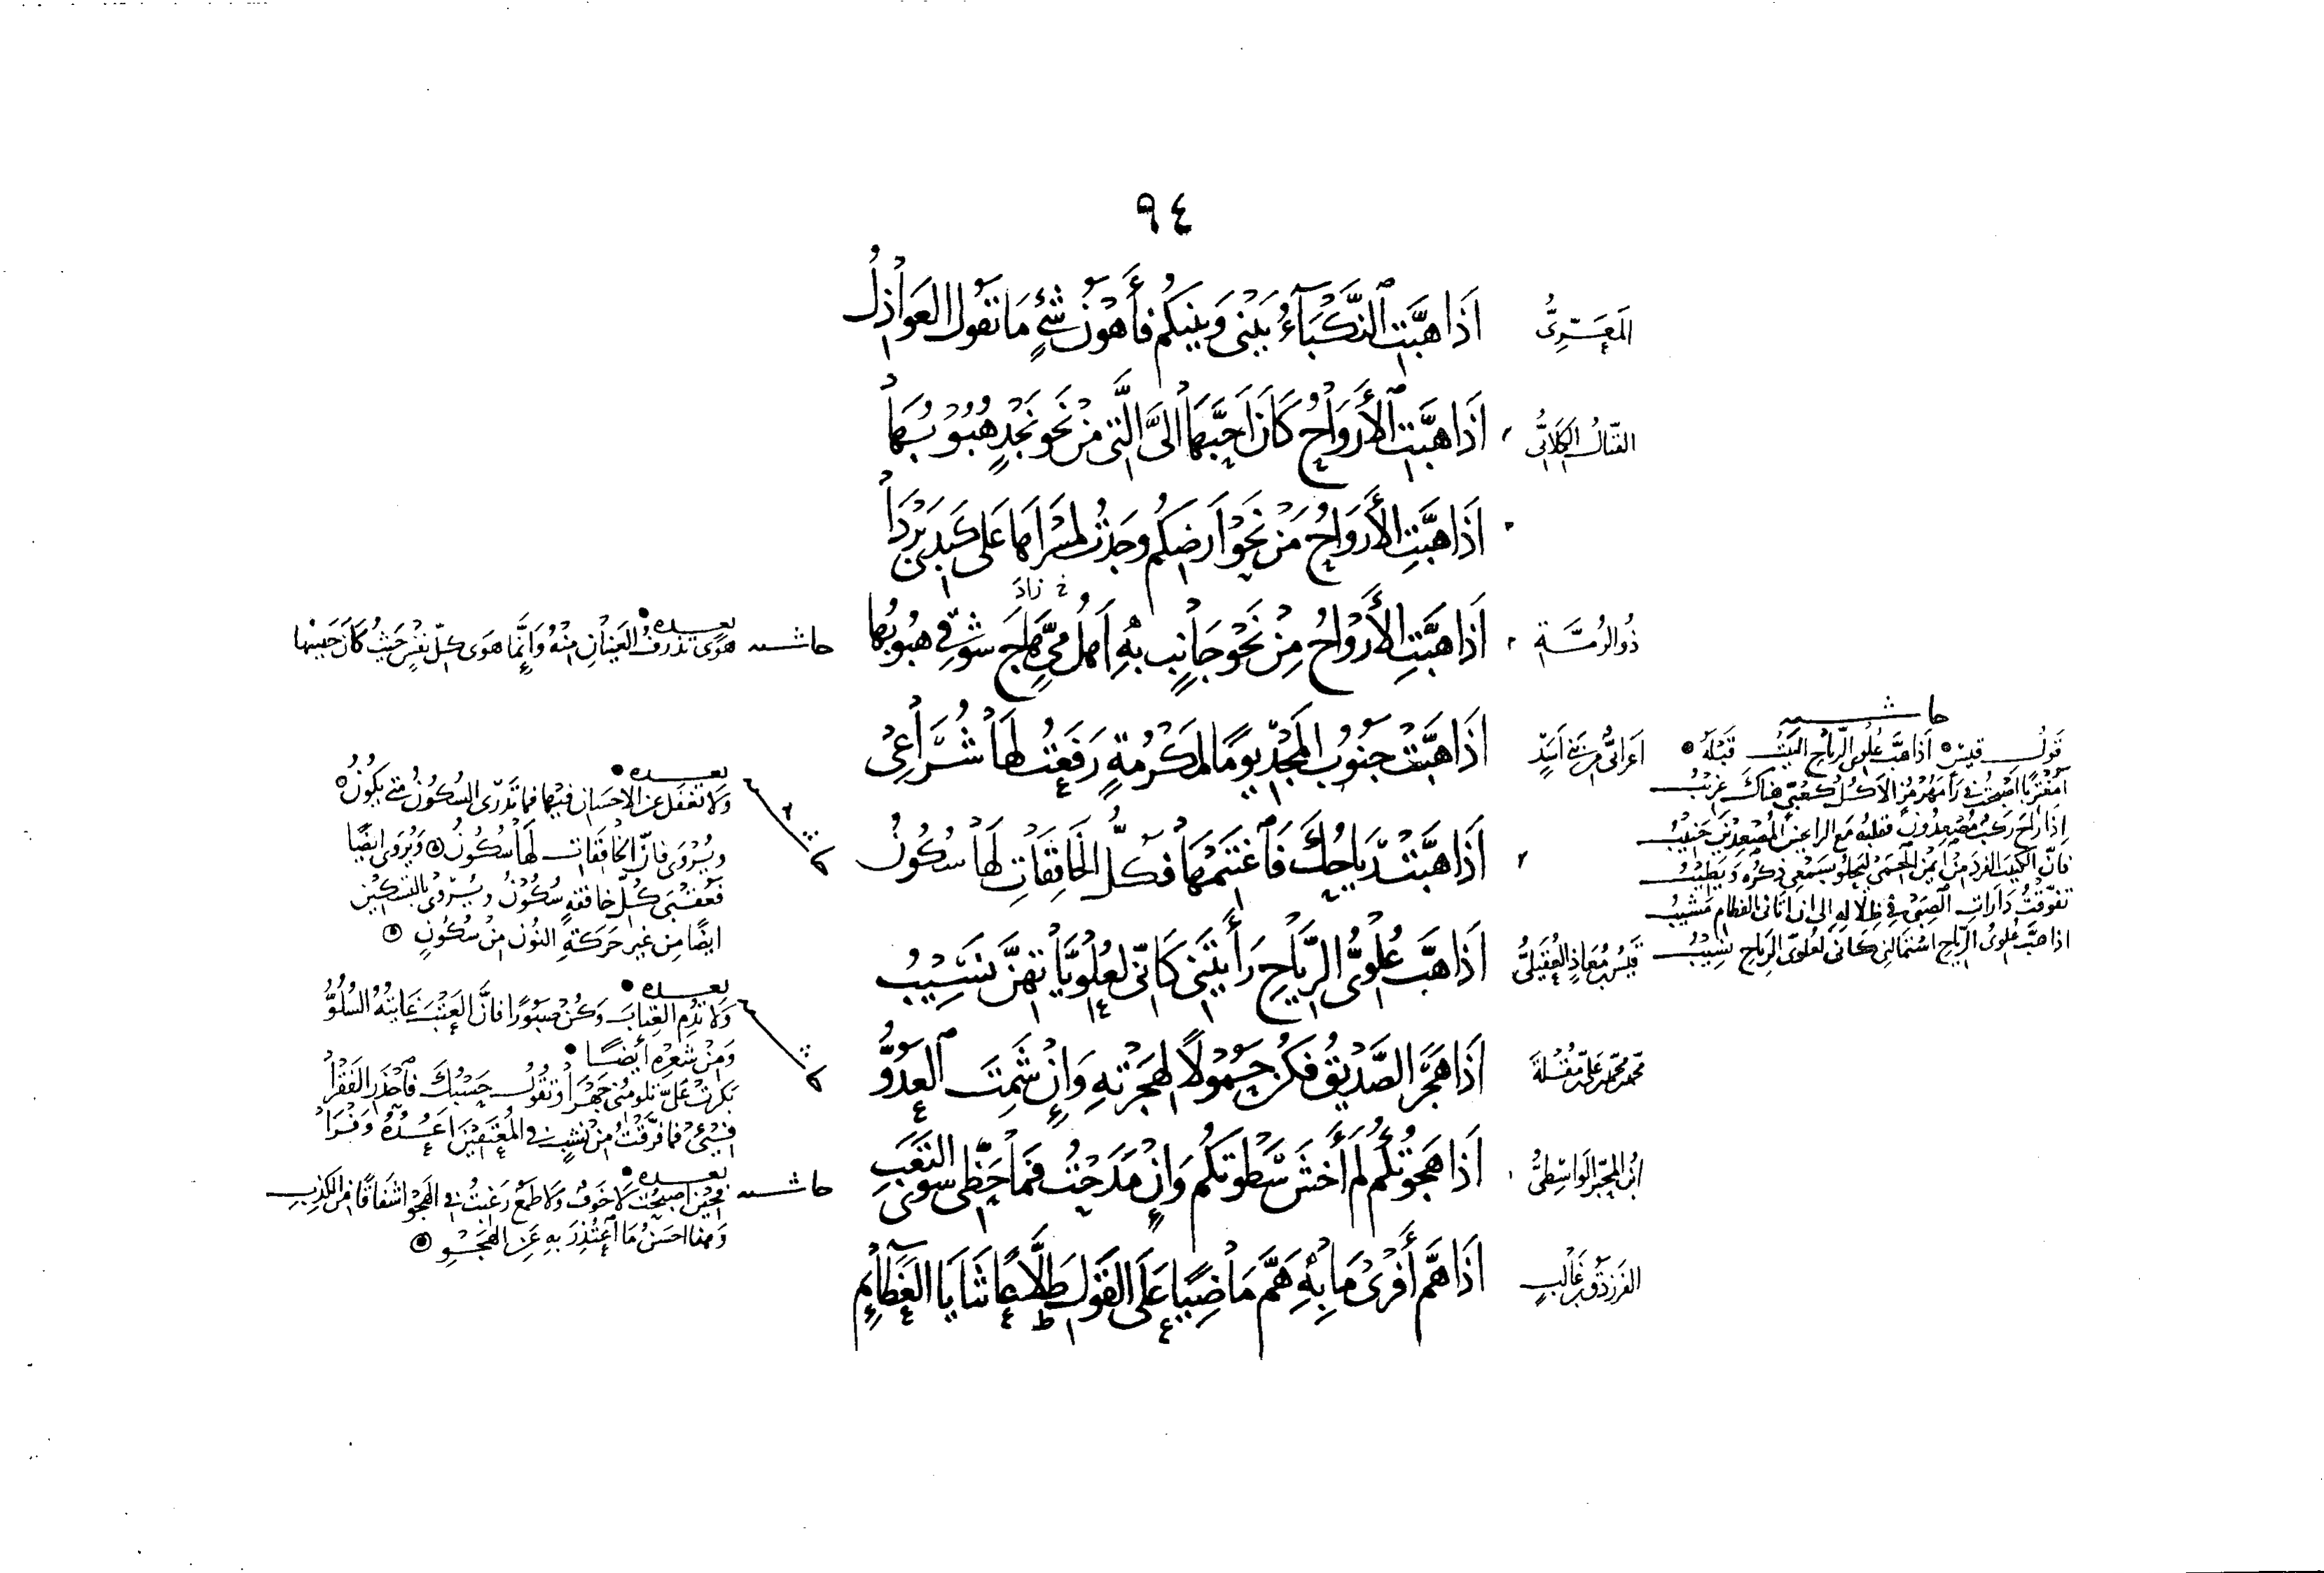 ٩٤
المَعَرِّيُّ
إذَا هَبَّتِ النَّكْبَاءُ بَيْنِي وَبَيْنَكُمْ فَأَهْوَنُ شَيْءٍ مَا تَقُولُ العَوَاذِلُ
القتّالُ الكِلابيُّ
إذَا هَبَّتِ الأَرْوَاحُ كَانَ أَحَبُّهَا إلَيَّ الَّتِي مِنْ نَحْوِ نَجْدٍ هُبُوبُهَا
إذَا هَبَّتِ الأَرْوَاحُ مِنْ نَحْوِ أَرْضِكُمْ وَجَدْتُ لِمَسْرَاهَا عَلَى كَبِدِي بَرْدَا
خ زادَ
ذُو الرُّمَّةِ
إذَا هَبَّتِ الأَرْوَاحُ مِنْ نَحْوِ جَانِبٍ بِهِ أَهْلُ مَيٍّ هَاجَ شَوْقِي هُبُوبُهَا
حاشية بعده
هَوًى تَذْرِفُ العَيْنَانِ مِنْهُ وَإنَّمَا هَوَى كُلِّ نَفْسٍ حَيْثُ كَانَ حَبِيبُهَا
أعرابيٌّ من بني أسدٍ
إذَا هَبَّتْ جَنُوبُ المَجْدِ يَوْمًا لِمَكْرُمَةٍ رَفَعْتُ لَهَا شُرَاعِي
إذَا هَبَّتْ رِيَاحُكَ فَاغْتَنِمْهَا فَكُلُّ الخَافِقَاتِ لَهَا سُكُونُ
بعده
وَلَا تَغْفَلْ عَنِ الإحْسَانِ فِيهَا فَمَا تَدْرِي السُّكُونُ مَتَى يَكُونُ
ويُرْوَى فَإنَّ الخَافِقَاتِ لَهَا سُكُونُ وَيُرْوَى أيضًا
فَعُقْبَى كُلِّ خَافِقَةٍ سُكُونُ ويُرْوَى بالتسكين
أيضًا مِن غَيْرِ حَرَكَةِ النُّون مِنْ سُكُونٍ
قَيْسُ بنُ مُعَاذٍ العُقَيْلِيُّ
إذَا هَبَّ عُلْوِيُّ الرِّيَاحِ رَأَيْتَنِي كَأَنِّي لِعُلْوِيَّاتِهِنَّ نَسِيبُ
حاشية
قَولُ قيسٍ إذَا هَبَّ عُلْوِيُّ الرِّيَاحِ البَيْتُ قَبْلَهُ
أَمُغْتَرِبًا أَصْبَحْتُ فِي رَامَهُرْمُزٍ أَلَا كُلُّ كَعْبِيٍّ هُنَاكَ غَرِيبُ
إذَا رَاحَ رَكْبٌ مُصْعِدُونَ فَقَلْبُهُ مَعَ الرَّائحِينَ المُصْعِدِينَ جَنِيبُ
فَإنَّ الكَثِيبَ الفَرْدَ مِنْ أَيْمَنِ الحِمَى لَيَحْلُو بِسَمْعِي ذِكْرُهُ وَيَطِيبُ
تَفَوَّقْتُ دَارَاتِ الصِّبَى فِي ظِلَالِهِ إلَى أنْ أَتَانِي الفِطَامِ مَشِيبُ
إذَا هَبَّ عُلْوِيُّ الرِّيَاحِ اسْتَمَالَنِي كَأَنِّي لِعُلْوِيِّ الرِّيَاحِ نَسِيبُ
محمّد بن محمّد بن عليّ بن مُقْلَة
إذَا هَجَرَ الصَّدِيقُ فَكُنْ حَمُولًا لِهَجْرَتِهِ وَإنْ شَمِتَ العَدُوُّ
بعده
وَلَا تُدِمِ العِتَابَ وَكُنْ صَبُورًا فَإنَّ العَتْبَ غَايَتُهُ السُّلُوُّ
وَمِنْ شِعْرِهِ أَيْضًا
بَكَرَتْ عَلَيَّ تَلُومُنِي جَهْرًا وَتَقُولُ حَسْبُكَ فَاحْذَرِ الفَقْرَا
فِيئِي فَمَا فَرَّقْتُ مِنْ نَشَبٍ فِي المُعْتَفِينَ أَعُدُّهُ وَفْرَا
ابْنُ المُجَبِّرِ الوَاسِطِيُّ
إذَا هَجَوْتُكُمُ لَمْ أَخْشَ سَطْوَتَكُمْ وَإنْ مَدَحْتُ فَمَا حَظِّي سِوَى التَّعَبِ
حاشية بعده
فَحِينَ أَصْبَحْتُ لَا خَوْفٌ وَلَا طَمَعٌ رَغِبْتُ فِي الهَجْوِ إشْفَاقًا مِنَ الكَذِبِ
وَهذا أحْسَنُ مَا اعْتُذِرَ بِهِ عَنِ الهَجْوِ
الفَرَزْدَقُ بنُ غَالبٍ
إذَا هَمَّ أَفْرَى مَا بِهِ هَمَّ مَاضِيًا عَلَى القَوْلِ طَلَّاعًا ثَنَايَا العَظَائِمِ